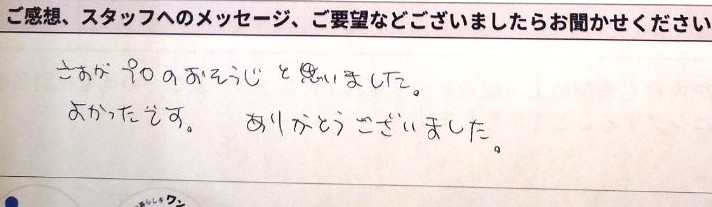 ご感想、スタッフへのメッセージ、ご要望などございましたらお聞かせください
さすが プロのおそうじ と思いました。
よかったです。 ありがとうございました。
暮らしをワン